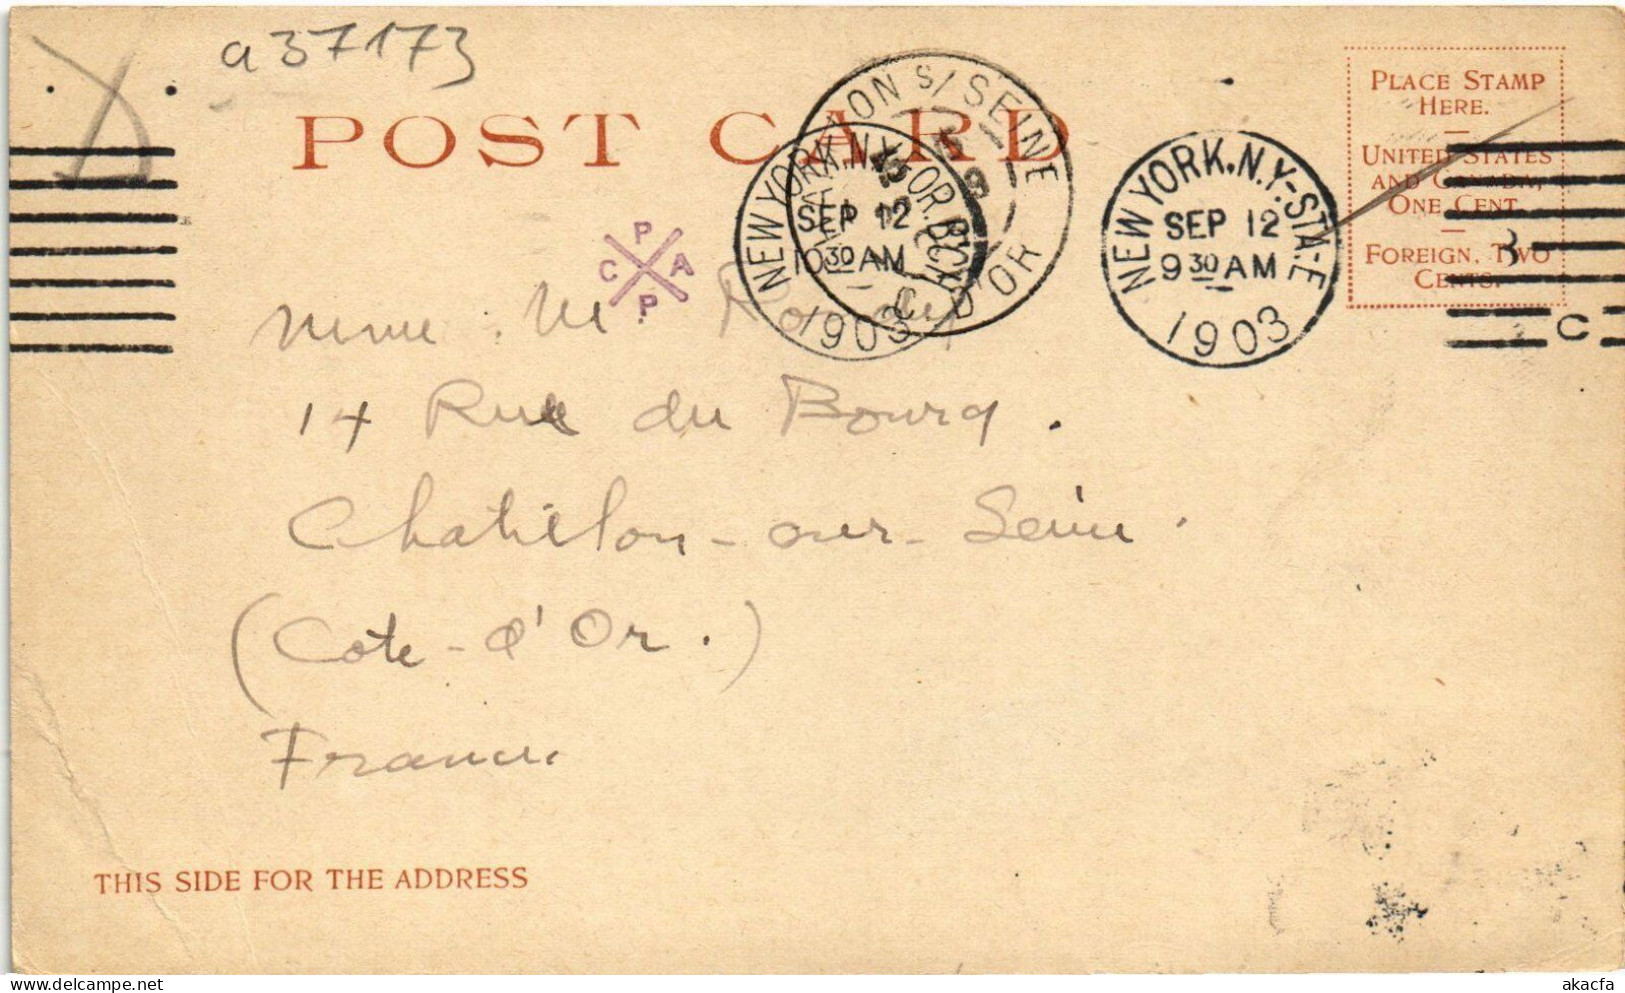 a37173
POST CARD
PLACE STAMP
HERE.
UNITED STATES
AND CANADA,
ONE CENT.
FOREIGN, TWO
CENTS.
3
NEW YORK, N.Y.-STA-E
SEP 12
9 30 AM
1903
C
NEW YORK, N.Y. FOR. BCH
SEP 12
10 30 AM
1903
CHATILLON S/ SEINE
C. D'OR
P
C A
P
Mme M.
14 Rue du Bourg.
Chatillon-sur-Seine.
(Cote-d'Or.)
France.
THIS SIDE FOR THE ADDRESS
akacfa